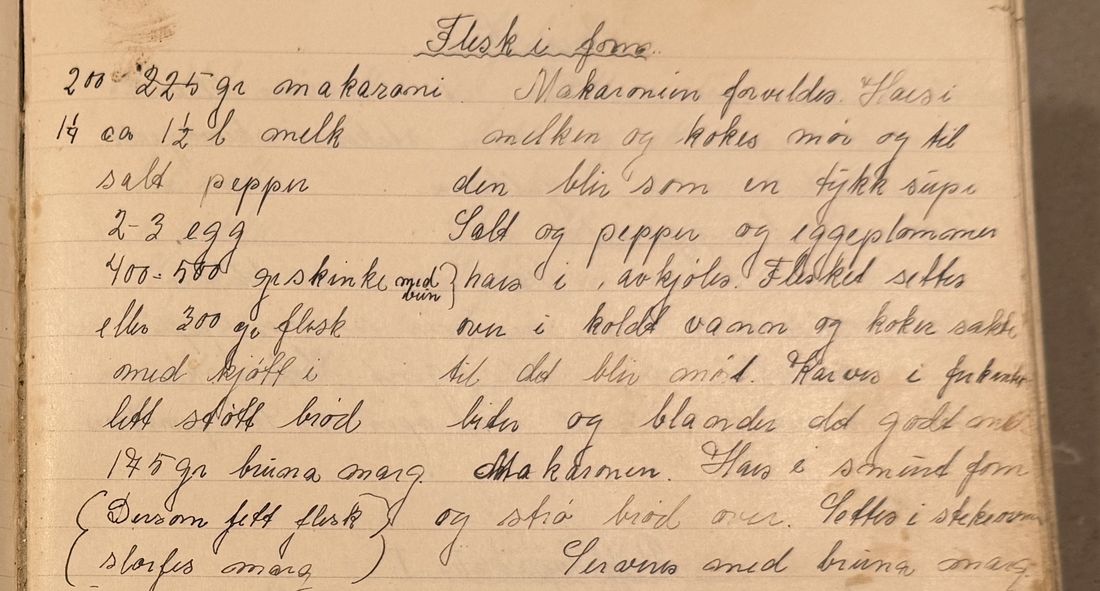 Flesk i form.
200 225 gr makaroni
1¼ ca 1½ l melk
salt pepper
2-3 egg
400-500 gr skinke med ben }
eller 300 gr flesk
med kjøtt i
litt støtt brød
175 gr bruna marg.
(Dersom fett flesk)
(sløifes marg)
Makaronien forveldes. Haes i
melken og kokes mør og til
den blir som en tykk supe
Salt og pepper og eggeplommer
haes i, avkjøles. Flesket settes
over i koldt vann og koker sakte
til det blir mørt. Karves i firkanter
biter og blander det godt med
Makaronien. Haes i smurt form
og strø brød over. Settes i stekeovn
Serveres med bruna marg.